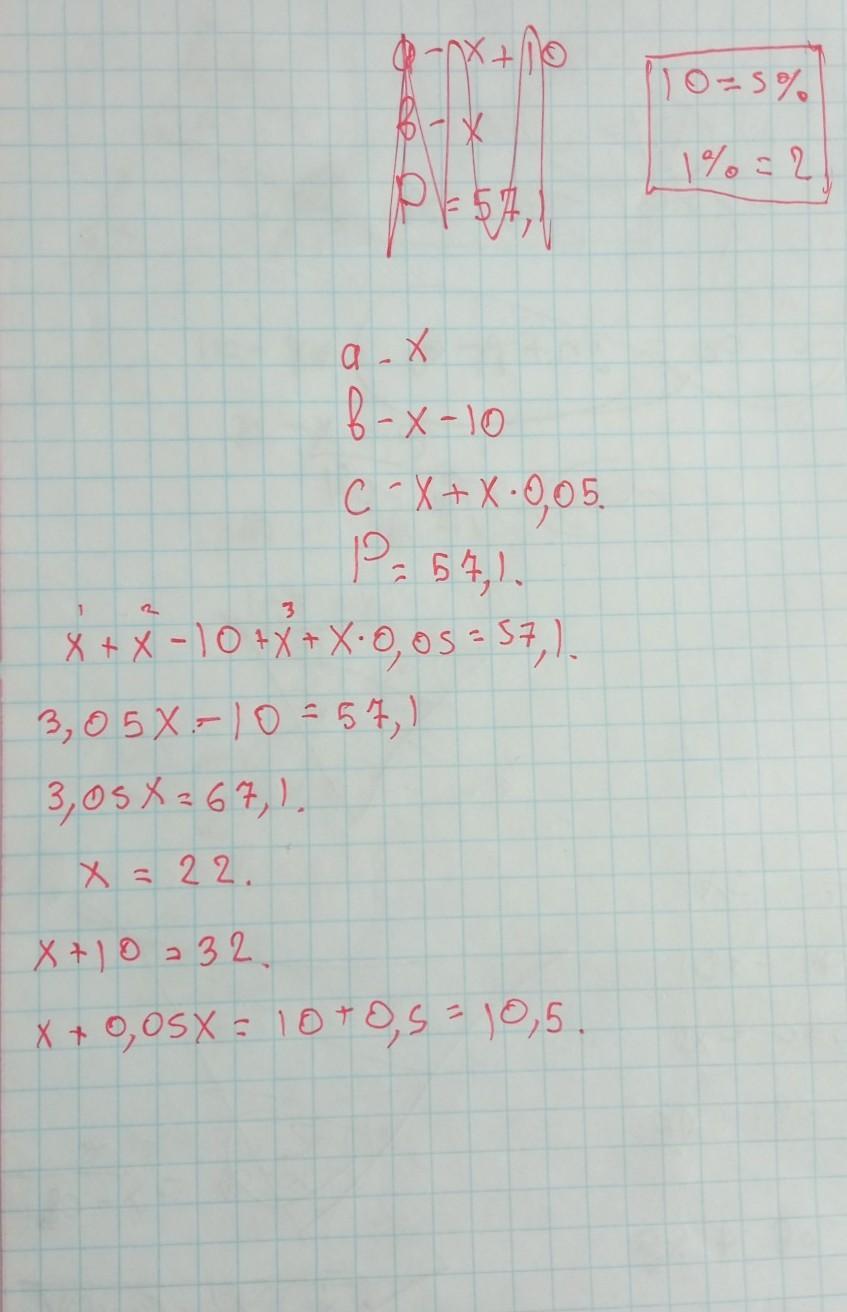 a - x + 10
в - x
P = 57,1
10 = 5%
1% = 2
a - x
в - x - 10
c - x + x · 0,05.
P = 57,1.
1 2 3
x + x - 10 + x + x · 0,05 = 57,1.
3,05x - 10 = 57,1
3,05x = 67,1.
x = 22.
x + 10 = 32.
x + 0,05x = 10 + 0,5 = 10,5.